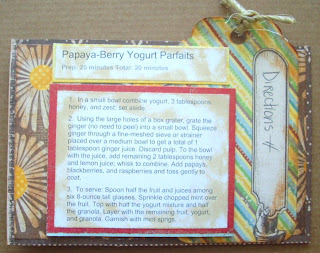 Papaya-Berry Yogurt Parfaits
Prep: 20 minutes Total: 20 minutes
1. In a small bowl combine yogurt, 3 tablespoons
honey, and zest; set aside.
2. Using the large holes of a box grater, grate the
ginger (no need to peel) into a small bowl. Squeeze
ginger through a fine-meshed sieve or strainer
placed over a medium bowl to get a total of 1
tablespoon ginger juice. Discard pulp. To the bowl
with the juice, add remaining 2 tablespoons honey
and lemon juice; whisk to combine. Add papaya,
blackberries, and raspberries and toss gently to
coat.
3. To serve: Spoon half the fruit and juices among
six 8-ounce tall glasses. Sprinkle chopped mint over
the fruit. Top with half the yogurt mixture and half
the granola. Layer with the remaining fruit, yogurt,
and granola. Garnish with mint sprigs.
Directions